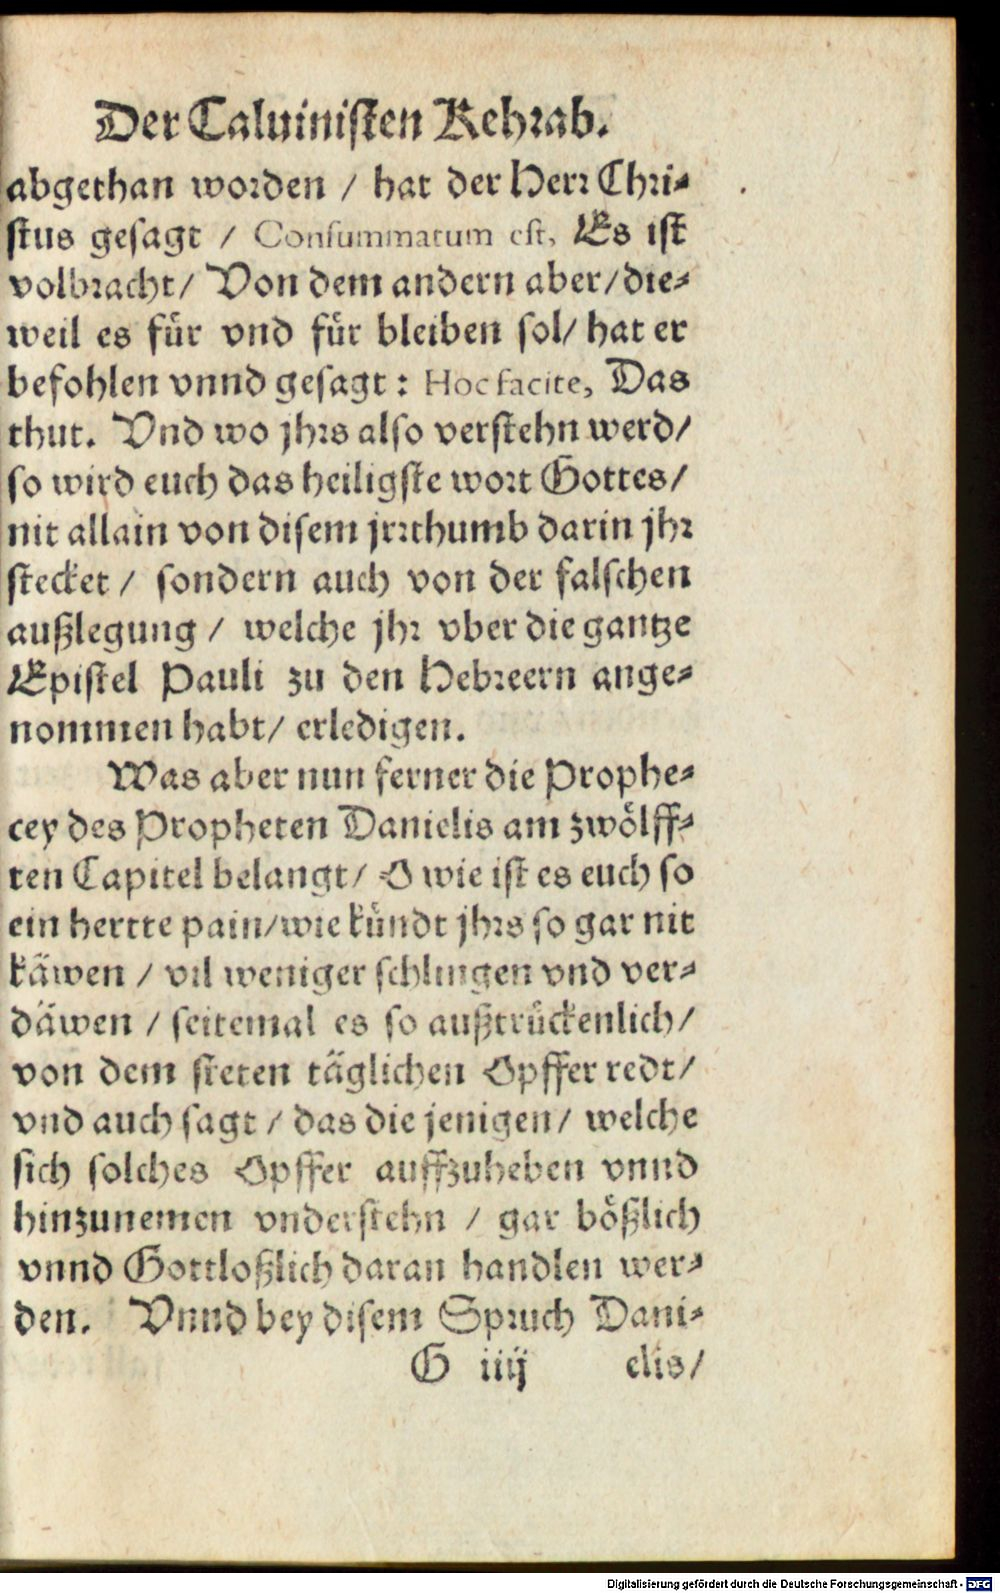 Der Caluinisten Kehrab.
abgethan worden / hat der Herr Chri-
stus gesagt / Consummatum est, Es ist
volbracht/ Von dem andern aber/die-
weil es für vnd für bleiben sol/ hat er
befohlen vnnd gesagt: Hoc facite, Das
thut. Vnd wo jhrs also verstehn werd/
so wird euch das heiligste wort Gottes/
nit allain von disem jrrthumb darin jhr
stecket / sondern auch von der falschen
außlegung / welche jhr vber die gantze
Epistel Pauli zu den Hebreern ange-
nommen habt/ erledigen.
Was aber nun ferner die Prophe-
cey des Propheten Danielis am zwölff-
ten Capitel belangt/ O wie ist es euch so
ein hertte pain/wie kündt jhrs so gar nit
käwen / vil weniger schlingen vnd ver-
däwen / seitemal es so außtrückenlich/
von dem steten täglichen Opffer redt/
vnd auch sagt / das die jenigen/ welche
sich solches Opffer auffzuheben vnnd
hinzunemen vnderstehn / gar bößlich
vnnd Gottloßlich daran handlen wer-
den. Vnnd bey disem Spruch Dani-
G iiij elis/
Digitalisierung gefördert durch die Deutsche Forschungsgemeinschaft - DFG